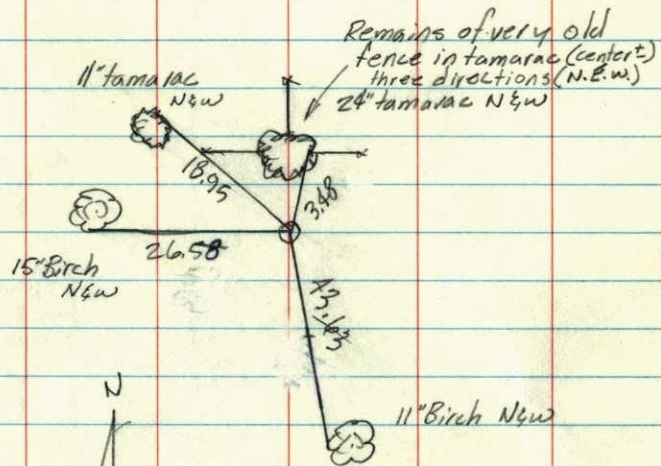 Remains of very old
fence in tamarac (center±)
three directions (N.E.W.)
24" tamarac N&W
11" tamarac
N&W
18.95
3.48
26.58
15" Birch
N&W
43.63
11" Birch N&W
N